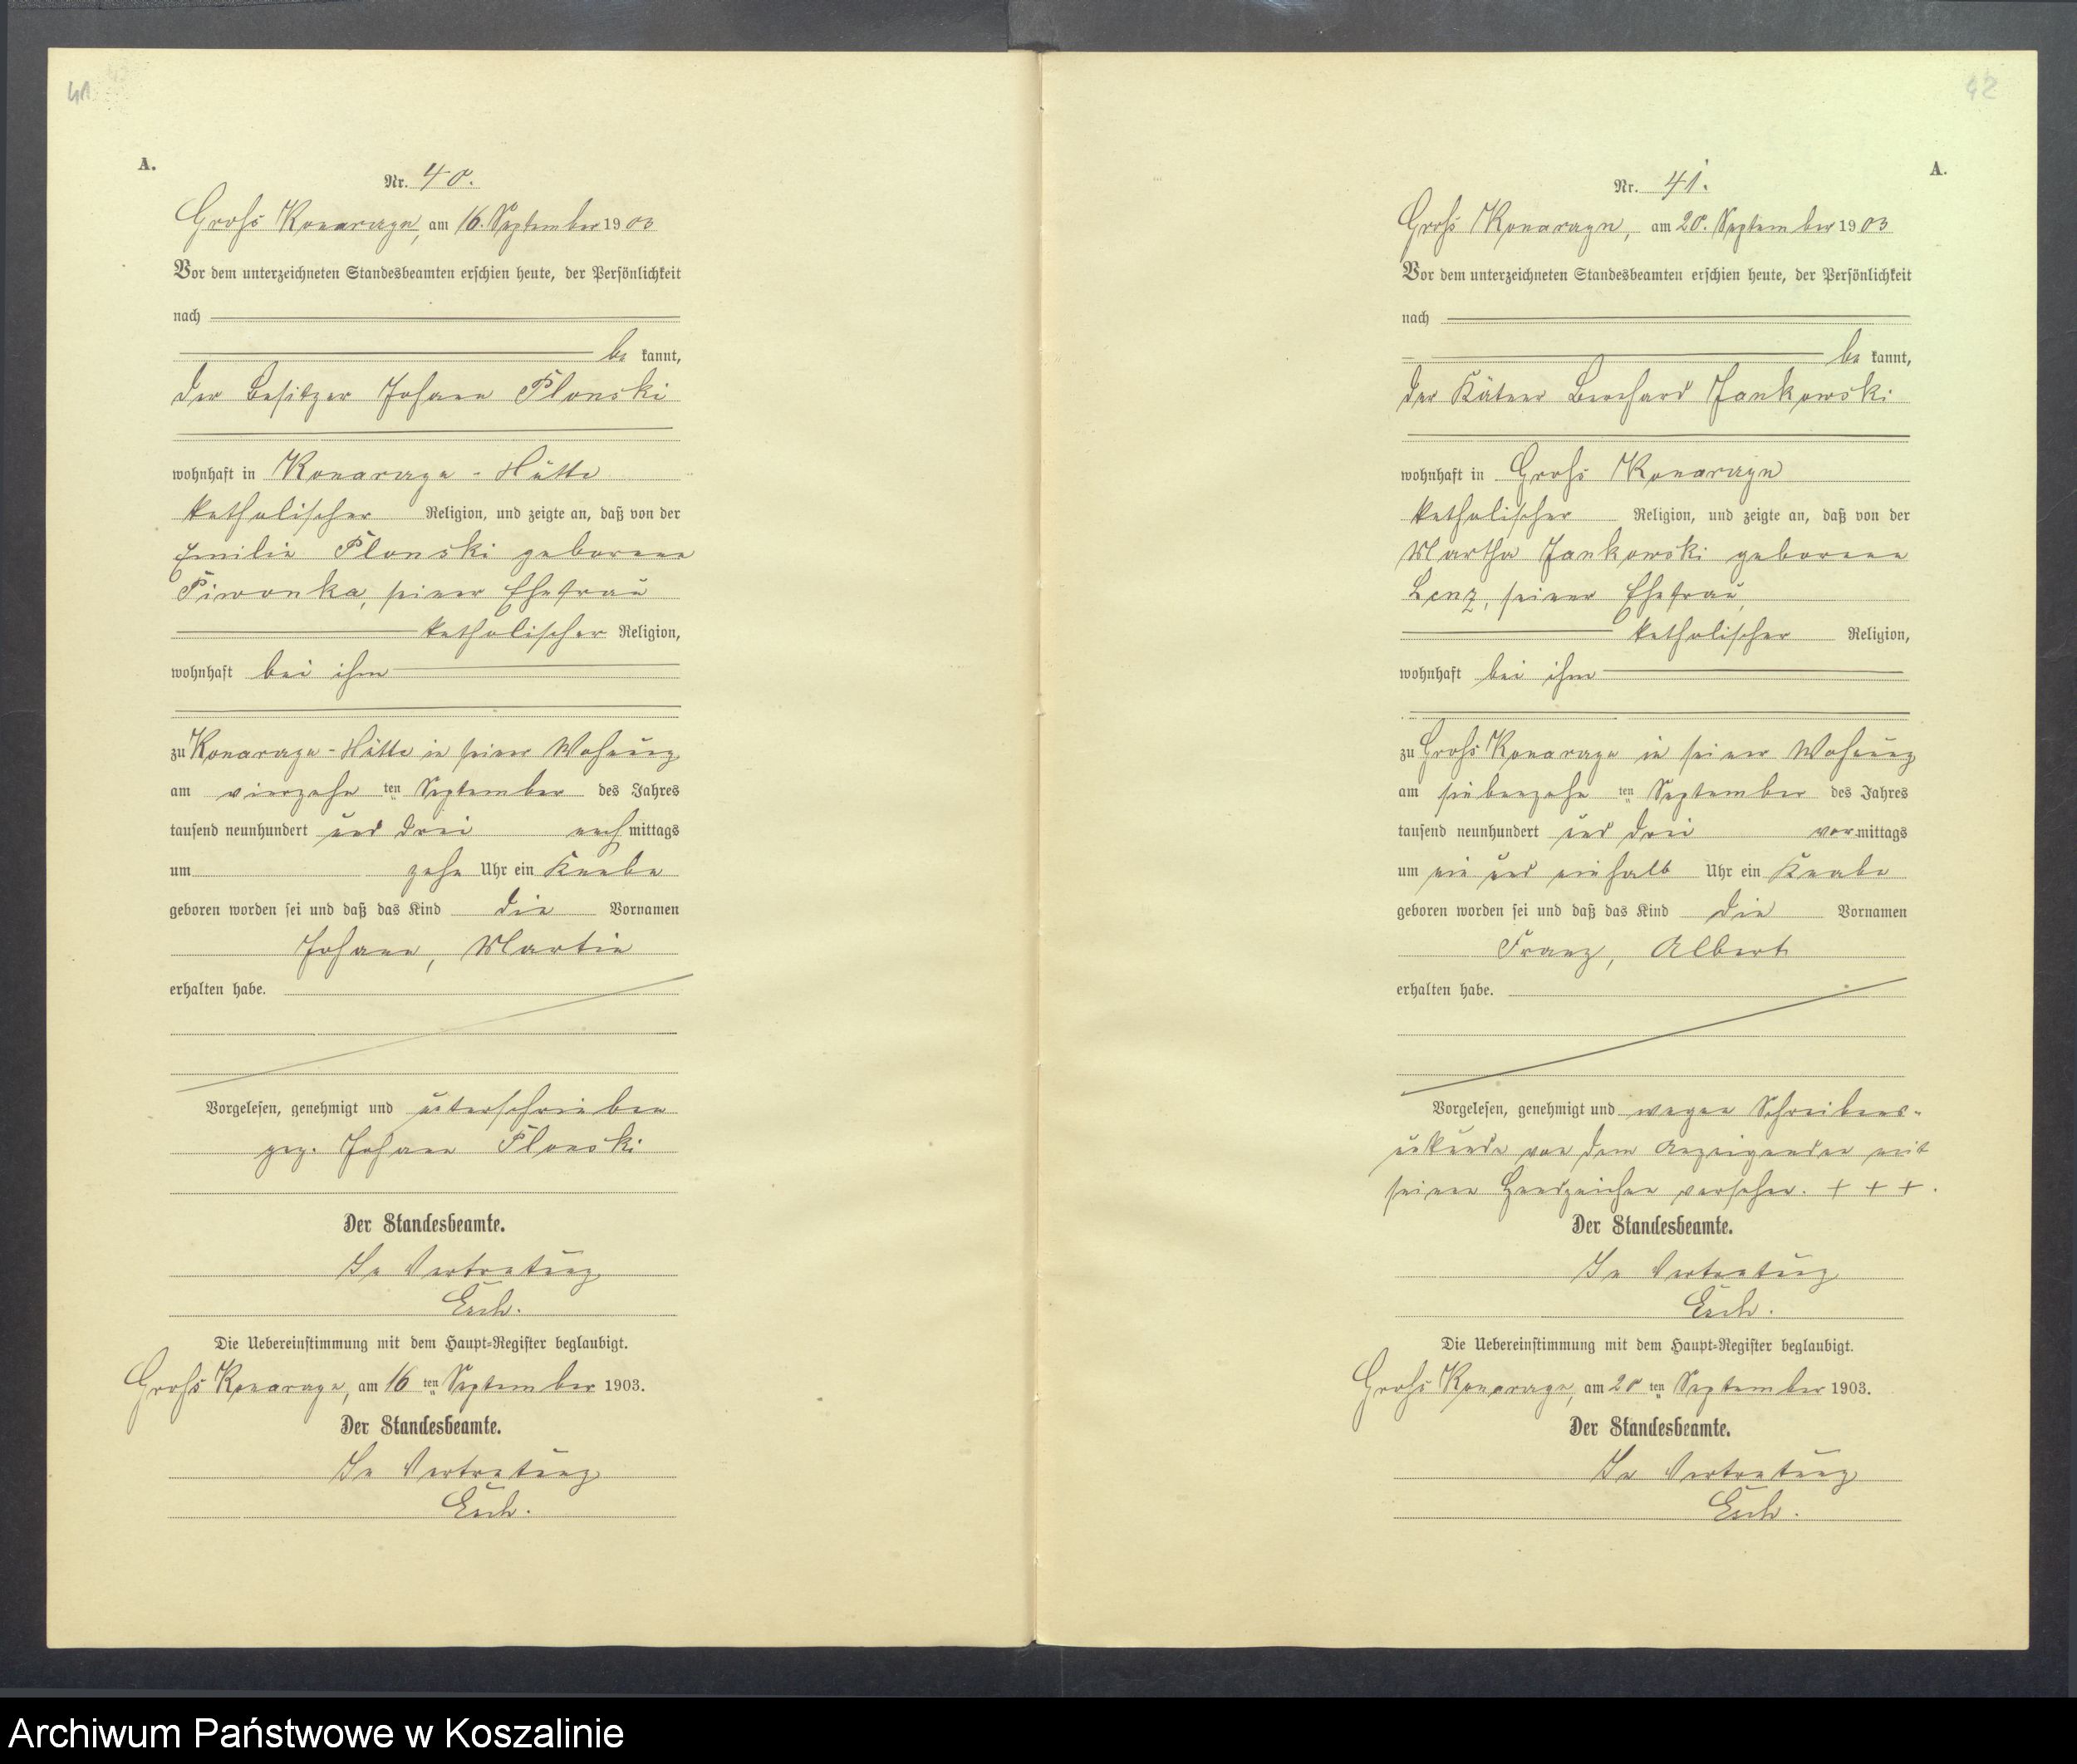 41
A.
Nr. 40.
Groß Konarczyn, am 16. September 1903
Vor dem unterzeichneten Standesbeamten erschien heute, der Persönlichkeit
nach
be kannt,
der Besitzer Johann Plonski
wohnhaft in Konarczyn-Hütte
katholischer Religion, und zeigte an, daß von der
Emilie Plonski geborene
Piwonka, seiner Ehefrau
katholischer Religion,
wohnhaft bei ihm
zu Konarczyn-Hütte in seiner Wohnung
am vierzehnten September des Jahres
tausend neunhundert und drei nachmittags
um zehn Uhr ein Knabe
geboren worden sei und daß das Kind die Vornamen
Johann, Martin
erhalten habe.
Vorgelesen, genehmigt und unterschrieben
gez. Johann Plonski
Der Standesbeamte.
In Vertretung
Die Uebereinstimmung mit dem Haupt-Register beglaubigt.
Groß Konarczyn, am 16ten September 1903.
Der Standesbeamte.
In Vertretung
42
A.
Nr. 41.
Groß Konarczyn, am 20. September 1903
Vor dem unterzeichneten Standesbeamten erschien heute, der Persönlichkeit
nach
be kannt,
der Kätner Bernhard Jankowski
wohnhaft in Groß Konarczyn
katholischer Religion, und zeigte an, daß von der
Martha Jankowski geborene
Lenz, seiner Ehefrau,
katholischer Religion,
wohnhaft bei ihm
zu Groß Konarczyn in seiner Wohnung
am siebenzehnten September des Jahres
tausend neunhundert und drei vormittags
um ein und einhalb Uhr ein Knabe
geboren worden sei und daß das Kind die Vornamen
Franz, Albert
erhalten habe.
Vorgelesen, genehmigt und wegen Schreibens-
unkunde von dem Anzeigenden mit
seinen Handzeichen versehen. + + +.
Der Standesbeamte.
In Vertretung
Die Uebereinstimmung mit dem Haupt-Register beglaubigt.
Groß Konarczyn, am 20ten September 1903.
Der Standesbeamte.
In Vertretung
Archiwum Państwowe w Koszalinie